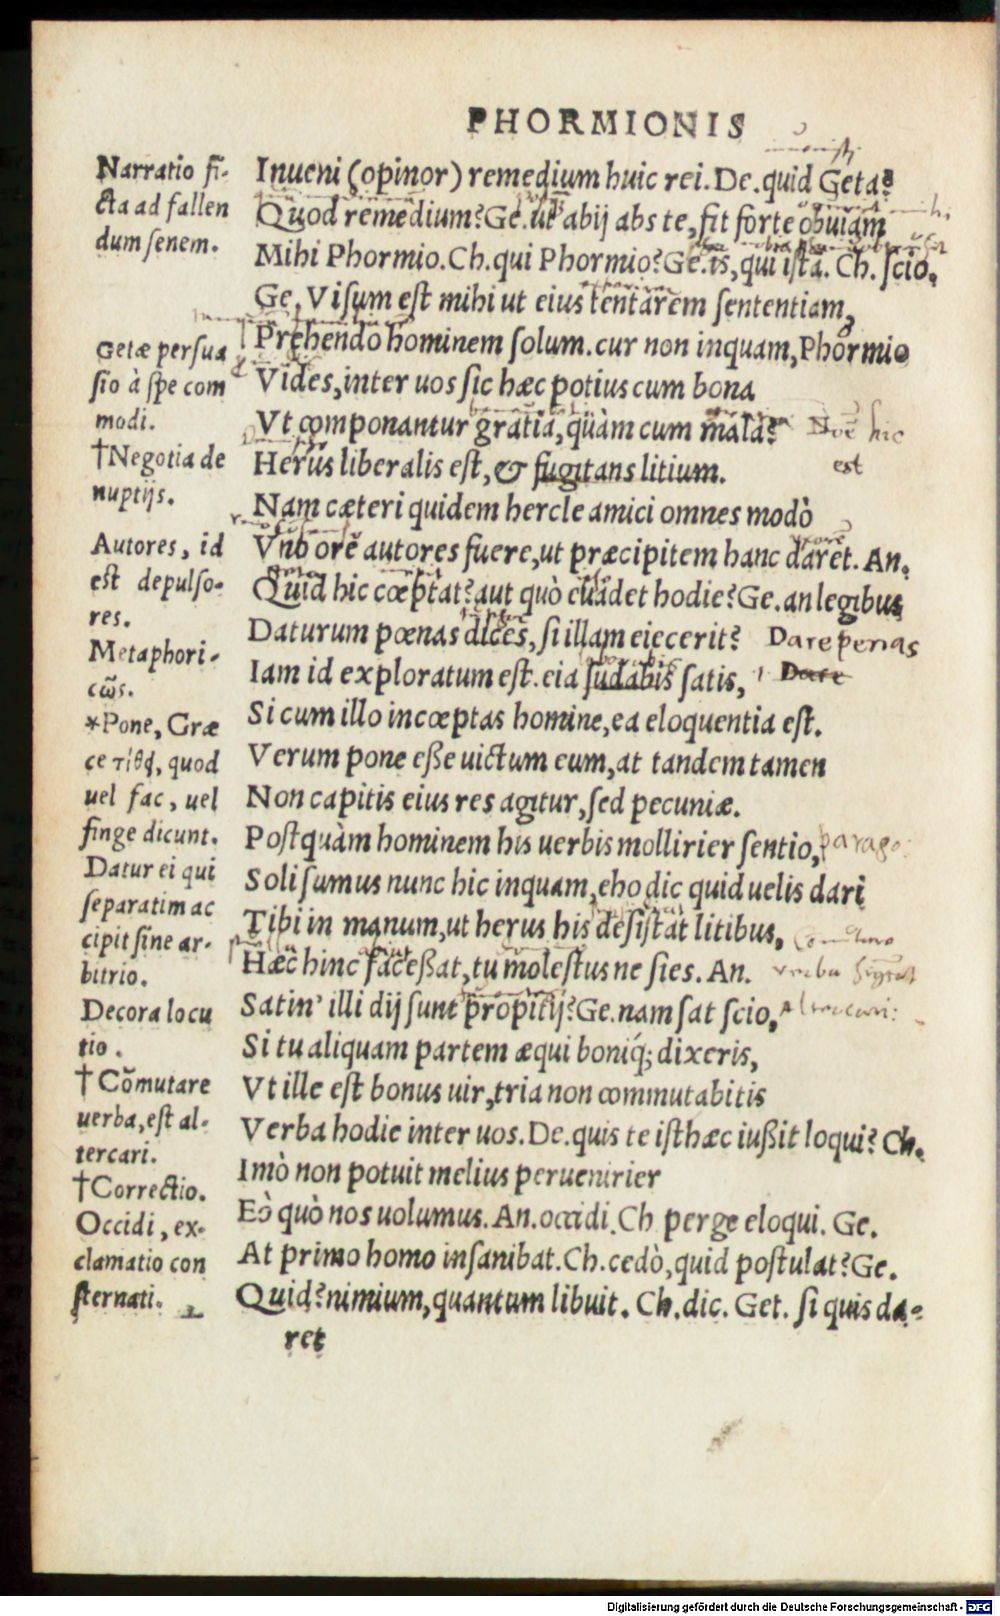 PHORMIONIS
Narratio fi-
cta ad fallen
dum senem.
Getæ persua
sio à spe com
modi.
†Negotia de
nuptijs.
Autores, id
est depulso-
res.
Metaphori-
cῶs.
*Pone, Græ
ce τίθ, quod
uel fac, uel
finge dicunt.
Datur ei qui
separatim ac
cipit sine ar-
bitrio.
Decora locu
tio.
† Cõmutare
uerba, est al-
tercari.
†Correctio.
Occidi, ex-
clamatio con
sternati.
Inueni (opinor) remedium huic rei. De. quid Geta?
Quod remedium? Ge. ut abij abs te, fit forte obuiam
Mihi Phormio. Ch. qui Phormio? Ge. is, qui istã. Ch. scio.
Ge. Visum est mihi ut eius tentarem sententiam,
Prehendo hominem solum. cur non inquam, Phormio
Vides, inter uos sic hæc potius cum bona
Vt componantur gratia, quàm cum mala?
hic
est
Herus liberalis est, & fugitans litium.
Nam cæteri quidem hercle amici omnes modò
Vno ore autores fuere, ut præcipitem hanc daret. An.
Quid hic cœptat? aut quò euadet hodie? Ge. an legibus
Daturum pœnas dices, si illam eiecerit? Dare penas
Iam id exploratum est. eia sudabis satis, Dare
Si cum illo incœptas homine, ea eloquentia est.
Verum pone eße uictum eum, at tandem tamen
Non capitis eius res agitur, sed pecuniæ.
Postquàm hominem his uerbis mollirier sentio, parago:
Soli sumus nunc hic inquam, eho dic quid uelis dari
Tibi in manum, ut herus his desistat litibus,
Hæc hinc faceßat, tu molestus ne sies. An. verba
Satin' illi dij sunt propitij? Ge. nam sat scio,
Si tu aliquam partem æqui boniq́; dixeris,
Vt ille est bonus uir, tria non commutabitis
Verba hodie inter uos. De. quis te isthæc iußit loqui? Ch.
Imò non potuit melius peruenirier
Eò quò nos uolumus. An. occidi. Ch perge eloqui. Ge.
At primo homo insanibat. Ch. cedò, quid postulat? Ge.
Quid? nimium, quantum libuit. Ch. dic. Get. si quis da-
ret
Digitalisierung gefördert durch die Deutsche Forschungsgemeinschaft - DFG